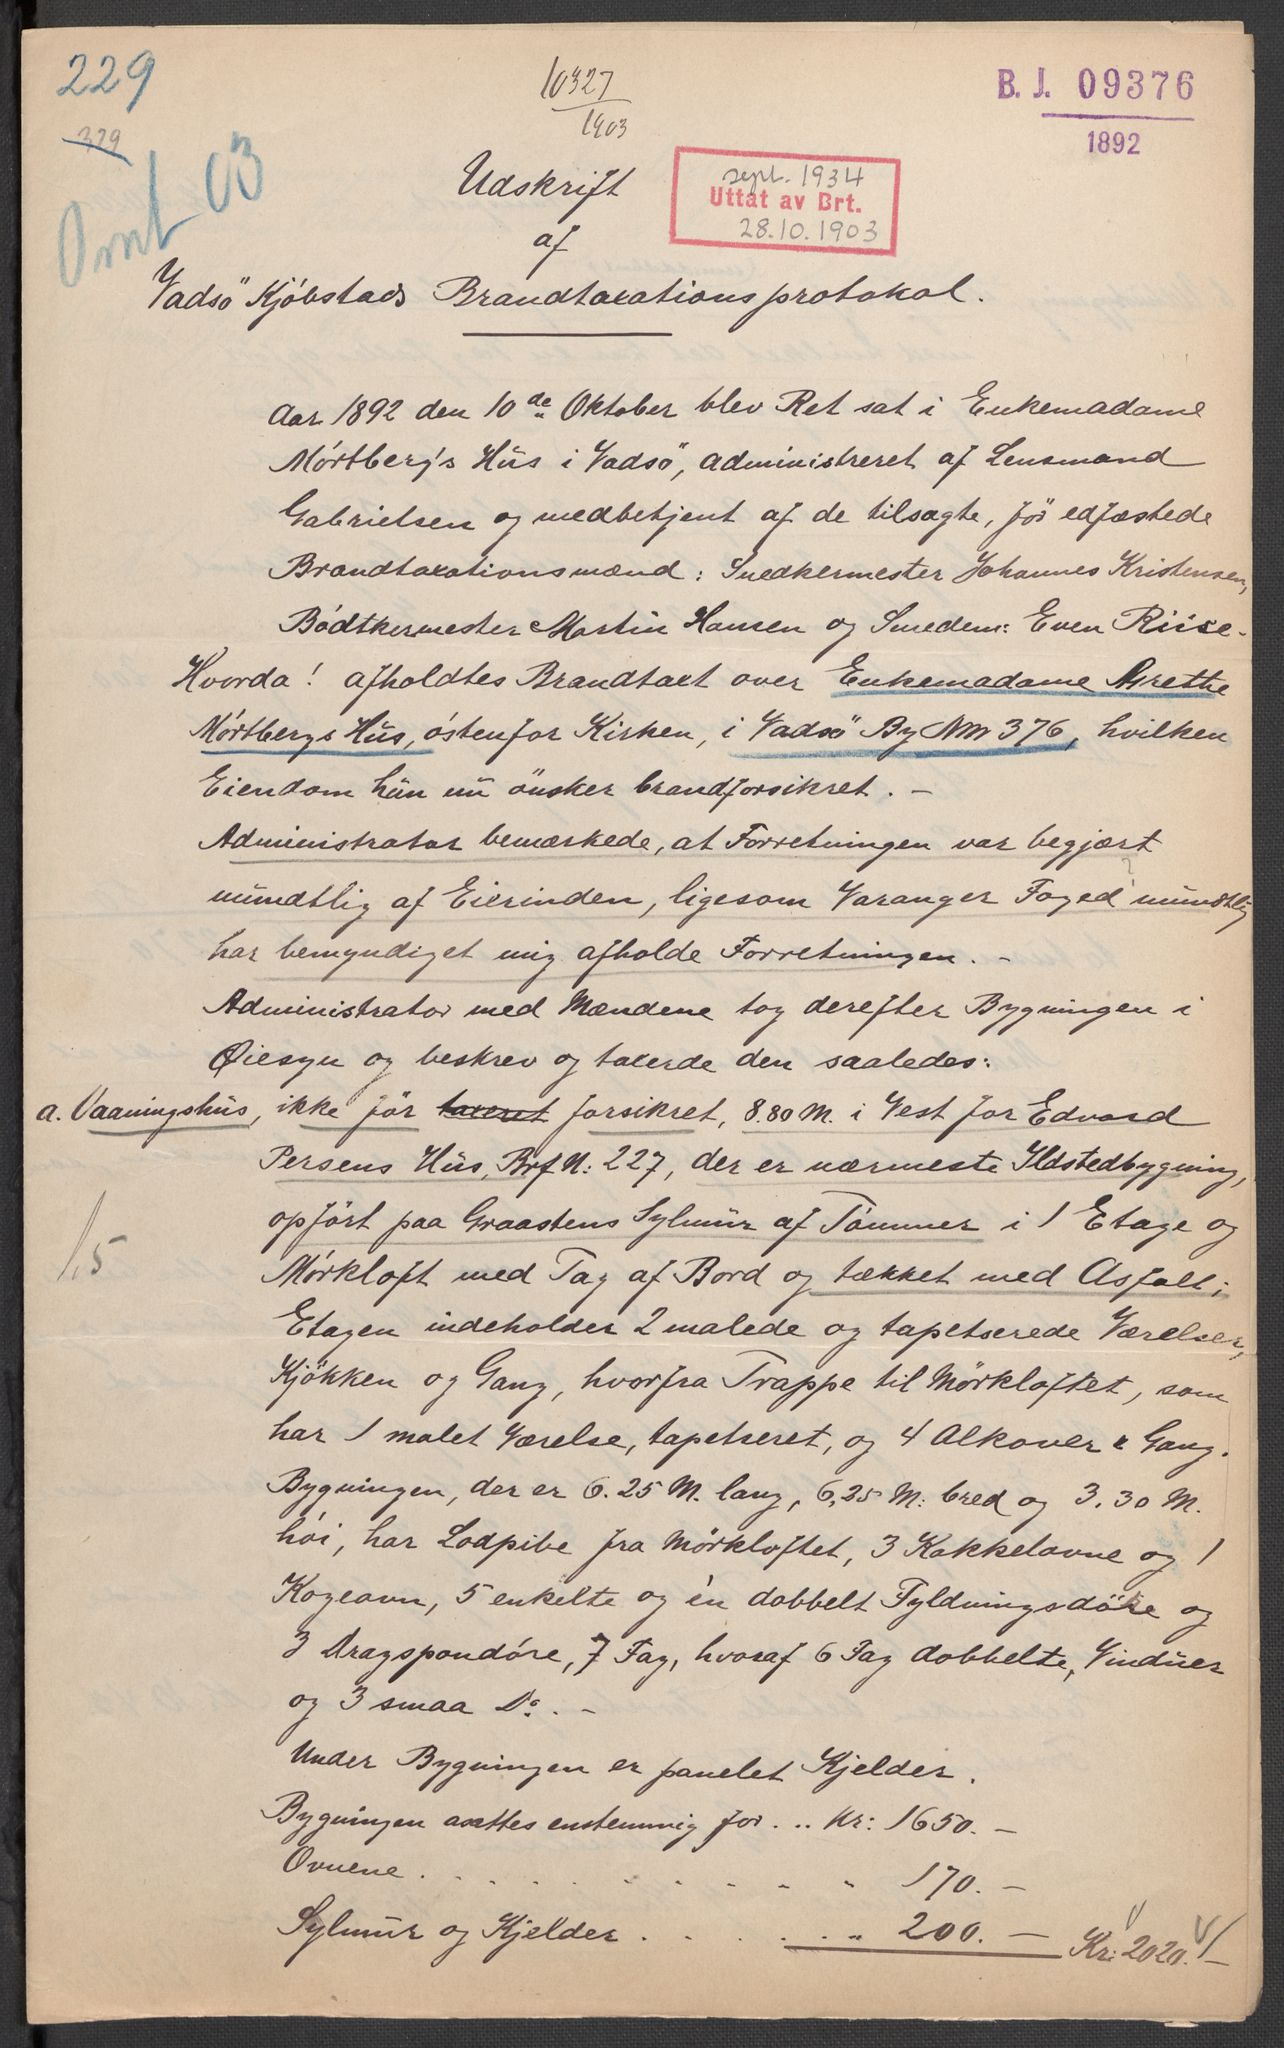 229
329
Omt 03
10327
1903
B. J. 09376
1892
sept. 1934
Uttat av Brt.
28.10.1903
Udskrift
af
Vadsö Kjøbstads Brandtaxationsprotokol.
Aar 1892 den 10de Oktober blev Ret sat i Enkemadame
Mørtberg's Hus i Vadsö, administreret af Lensmand
Gabrielsen og medbetjent af de tilsagte, før edfæstede
Brandtaxationsmænd: Snedkermester Johannes Kristensen,
Bødtkermester Martin Hansen og Smedem: Even Riise.
Hvorda! afholdtes Brandtaxt over Enkemadame Grethe
Mørtbergs Hus, østenfor Kirken, i Vadsö By No 376, hvilken
Eiendom hun nu ønsker brandforsikret. –
Administrator bemærkede, at Forretningen var begjært
mundtlig af Eierinden, ligesom Varanger Foged mundtlig
har bemyndiget mig afholde Forretningen. –
Administrator med Mændene tog derefter Bygningen i
Øiesyn og beskrev og taxerde den saaledes:
a. Vaaningshus, ikke før taxeret forsikret, 8.80 M. i Vest for Edvard
Persens Hus, Brf N: 227, der er nærmeste Ildstedbygning,
opført paa Graastens Sylmur af Tømmer i 1 Etage og
Mørkloft med Tag af Bord og tækket med Asfalt;
1.5
Etagen indeholder 2 malede og tapetserede Værelser,
Kjøkken og Gang, hvorfra Trappe til Mørkloftet, som
har 1 malet Værelse, tapetseret, og 4 Alkover & Gang.
Bygningen, der er 6.25 M. lang, 6,25 M. bred og 3.30 M.
høi, har Lodpibe fra Mørkloftet, 3 Kakkelovne og 1
Kogeovn, 5 enkelte og én dobbelt Fyldningsdøre og
3 Dragspondøre, 7 Fag, hvoraf 6 Fag dobbelte, Vinduer
og 3 smaa Do. –
Under Bygningen er panelet Kjelder.
Bygningen asættes enstemmig for . .. Kr: 1650. –
Ovnene . . . . . . . . . " 170. –
Sylmur og Kjelder . . . . . . " 200. – Kr: 2020. –